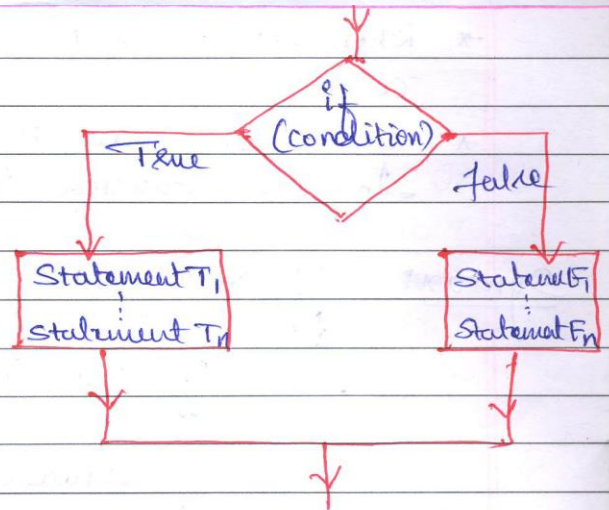 if
(condition)
True
false
Statement T1
Statement Tn
Statement F1
Statement Fn